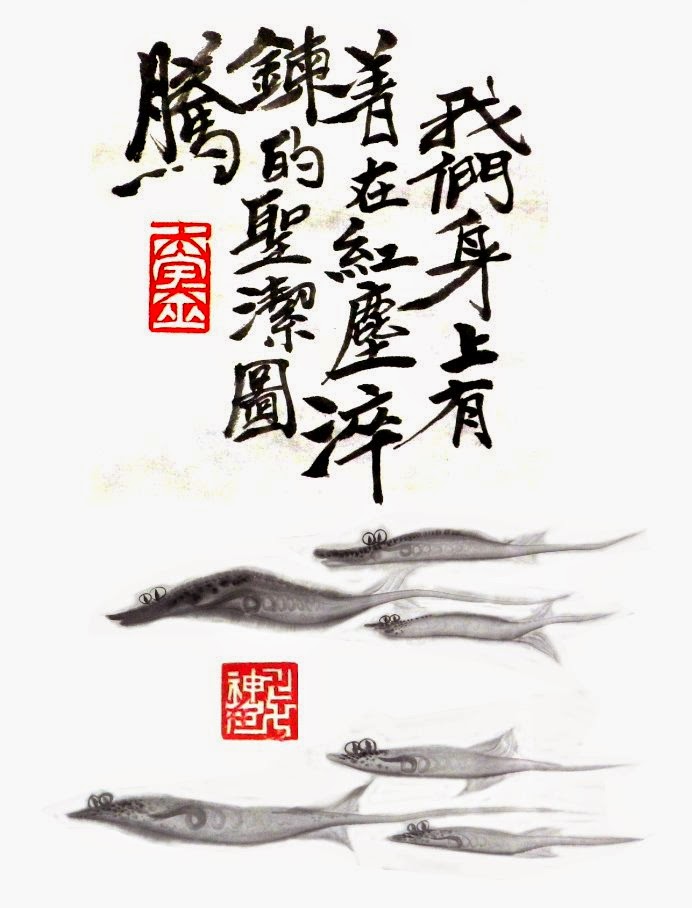 我們身上有
着在紅塵淬
鍊的聖潔圖
騰